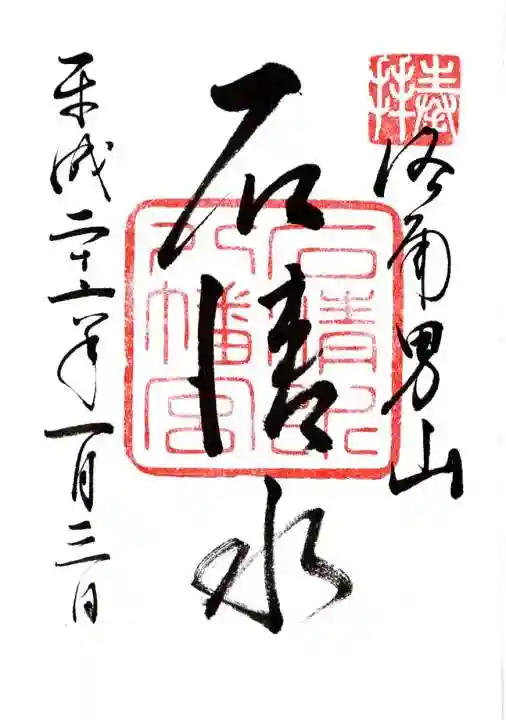 奉拝
洛南男山
石清水
石清水八幡宮
平成二十二年一月三日